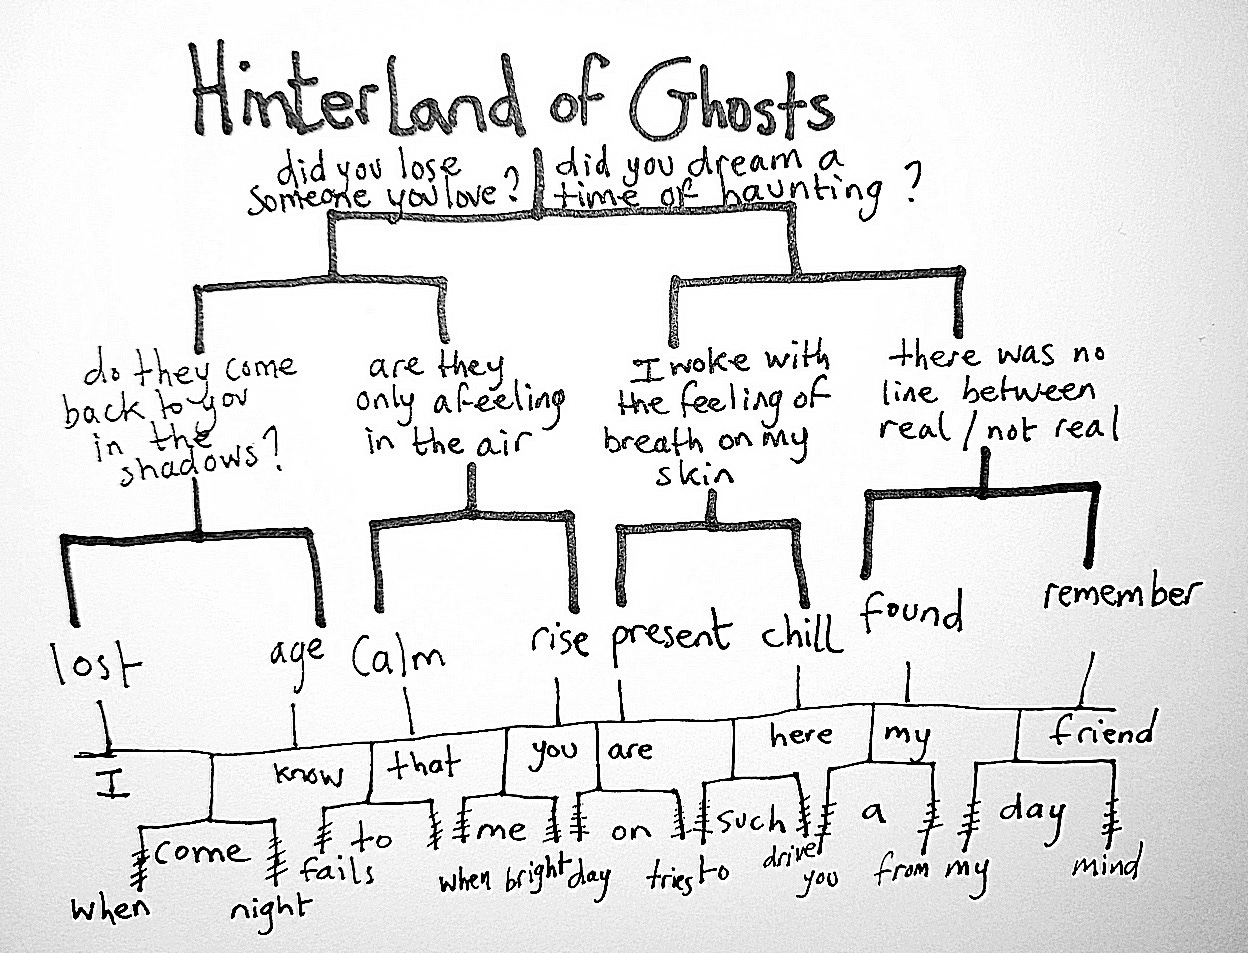 Hinterland of Ghosts
did you lose
someone you love?
did you dream a
time of haunting?
do they come
back to you
in the
shadows?
are they
only a feeling
in the air
I woke with
the feeling of
breath on my
skin
there was no
line between
real / not real
lost age calm rise present chill found remember
I know that you are here my friend
come to me on such a day
when night fails when bright day tries to drive you from my mind